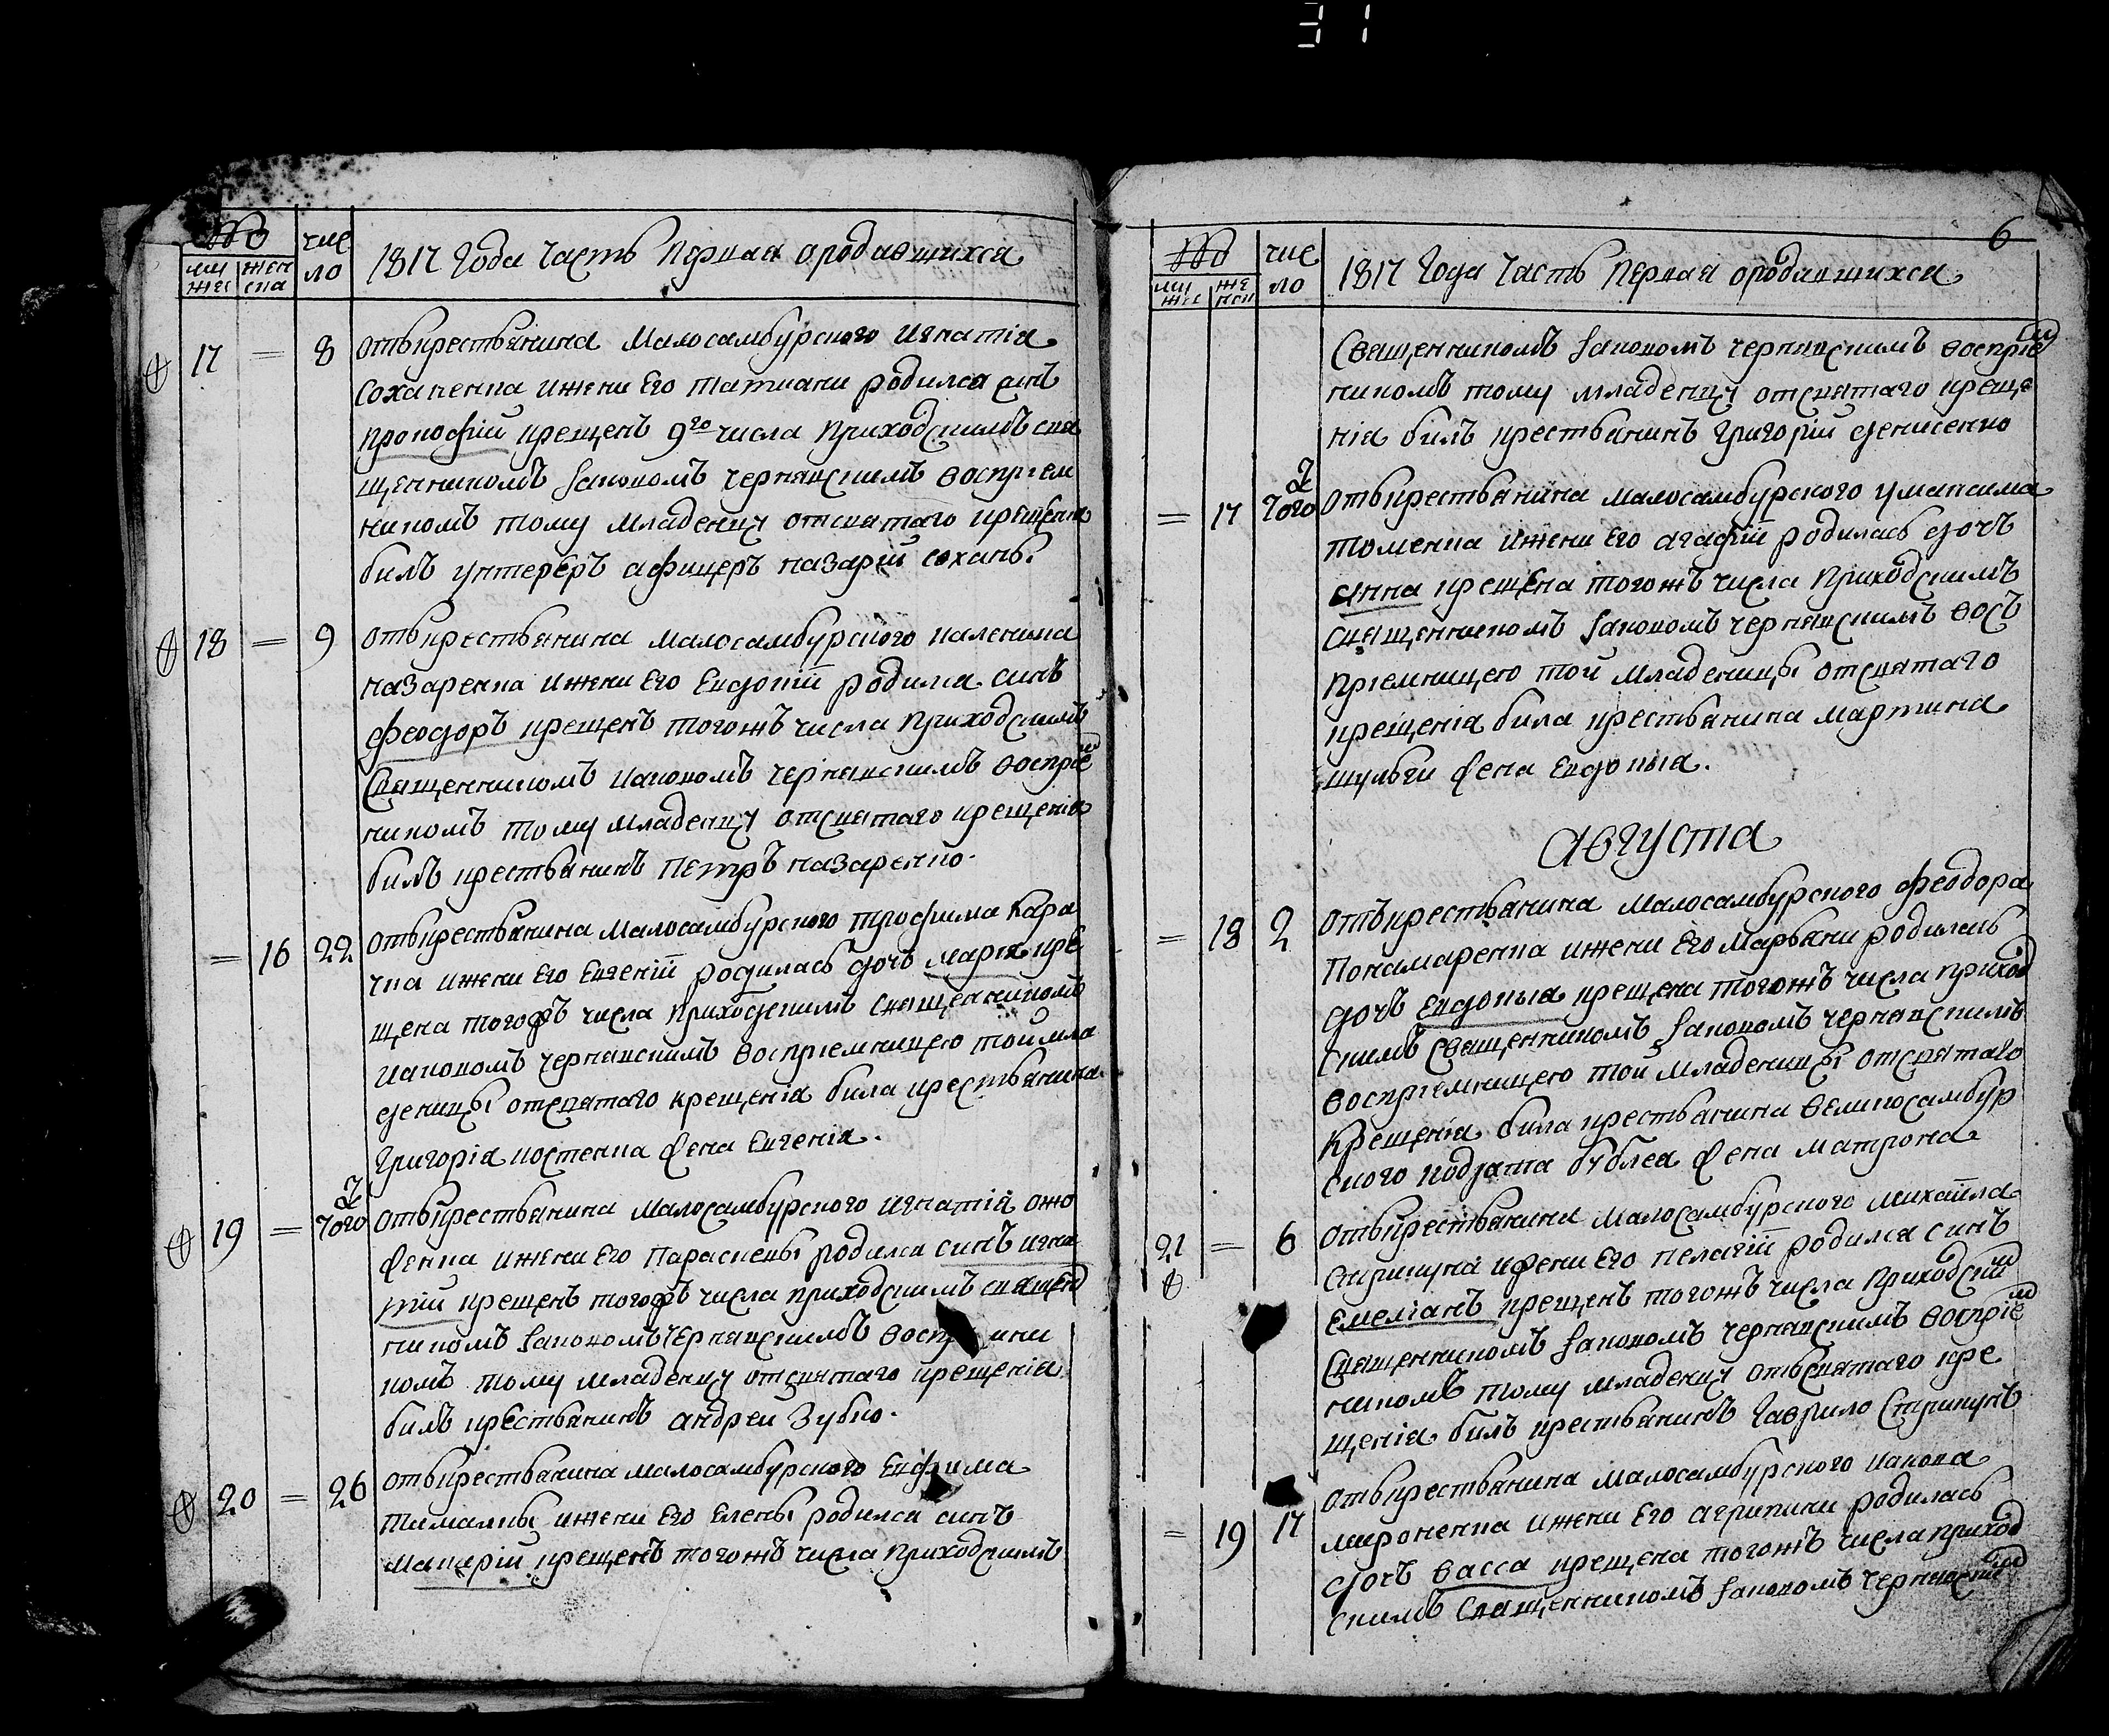 31
№
муж жен
ска
чис
ло
1817 Года Часть Первая ородавшихся
17 = 8
отъкрестьянина Малосамбурского Игнатія
Соханенка ижени Его Татиани родился синъ
Прокофій крещенъ 9го числа Приходскимъ свя
щенникомъ Іаковомъ Чернявскимъ воспріем
никомъ тому младенцу отсвятаго крещенія
билъ унтерєръ афицеръ назарій сохань.
18 = 9
отъкрестьянина малосамбурского
назаренка ижени Его Евдокіи родился синъ
феодоръ крещенъ тогожъ числа Приходскимъ
Священникомъ Иаковомъ Чернявскимъ воспріем
никомъ тому младенцу отсвятаго крещенія
билъ крестьянинъ Петръ назаренко.
= 16 22
отъкрестьянина Малосамбурского трофима Кара
чка ижени Его Евгеніи родилась дочъ марія кре
щена тогожъ числа Приходскимъ Священникомъ
Иаковомъ чернявскимъ воспріемницею той мла
деницы отсвятаго крещенія била крестьянина
Григорія костенка жена Евгенія.
19 = того
отъкрестьянина малосамбурского игнатія
женка ижени Его Параскевы родился синъ игна
тій крещенъ тогожъ числа приходскимъ священ
никомъ Іаковомъ Чернявскимъ
комъ тому младенцу отсвятаго крещенія
билъ крестьянинъ андрей Зубко.
20 = 26
отъкрестьянина малосамбурского Евфима
ижени Его Елены родился синъ
Макарій крещенъ тогожъ числа Приходскимъ
6
№
муж же
нск
чис
ло
1817 Года Часть Первая ородавшихся
Священникомъ Іаковомъ чернявскимъ воспріем
никомъ тому младенцу отсвятаго креще
нія билъ крестьянинъ Григорій денисенко
= 17 того
отъкрестьянина малосамбурского умаксима
томенка ижени Его агафіи родилась дочъ
анна крещена тогожъ числа Приходскимъ
Священникомъ Іаковомъ чернявскимъ восъ
пріемницею той младеницы отсвятаго
крещенія била крестьянина мартина
шульги жена Евдокия.
Августа
= 18 2
отъкрестьянина малосамбурского феодора
Понамаренка ижени Его Марьяни родилась
дочъ Евдокия крещена тогожъ числа приход
скимъ священникомъ Іаковомъ чернявскимъ
воспріемницею той младеницы отсвятаго
Крещенія била крестьянина великосамбур
ского жена матрона
21 = 6
отъкрестьянина малосамбурского михаила
Скрипуна ижени Его пелагіи родился синъ
Емеліанъ крещенъ тогожъ числа Приходским
Священникомъ Іаковомъ чернявскимъ воспріем
никомъ тому младенцу отъсвятаго кре
щенія билъ крестьянинъ Гаврило Скрипунъ
= 19 17
отъкрестьянина малосамбурского иакова
мироненка ижени Его агрипини родилась
дочъ васса крещена тогожъ числа приход
скимъ Священникомъ Іаковомъ чернявским